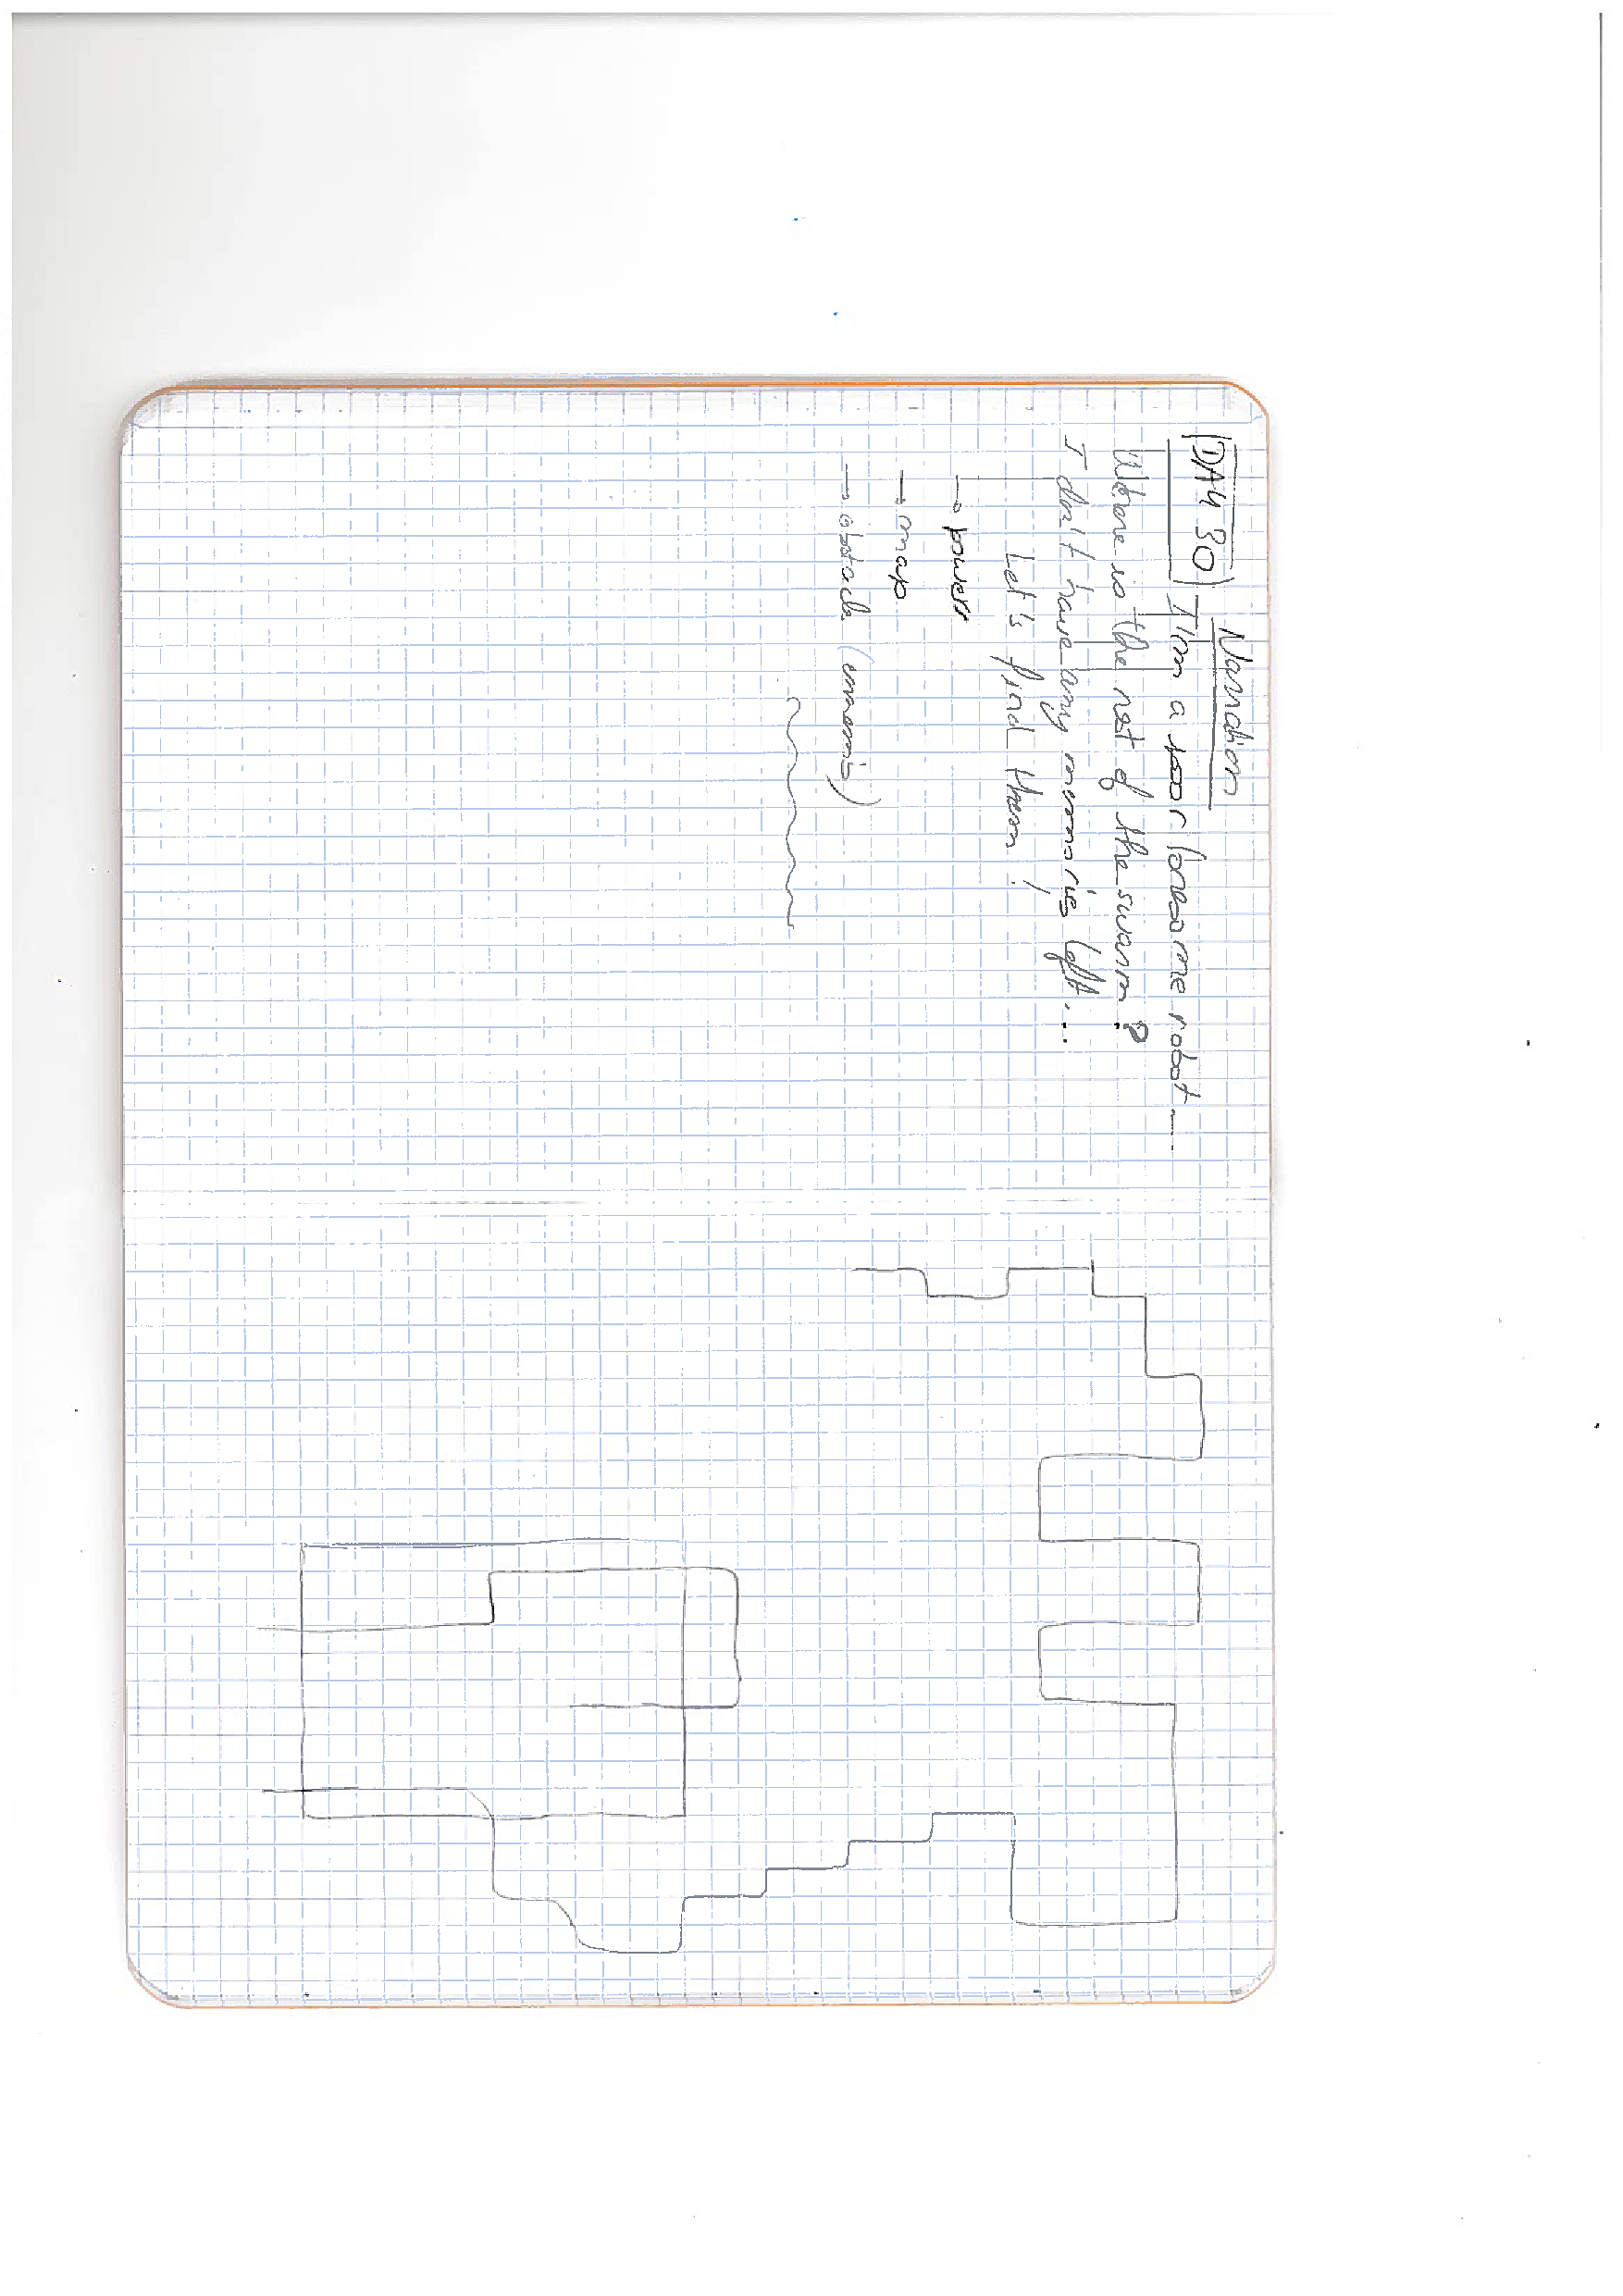 Narration
DAY 30) I'm a poor lonesome robot ....
Where is the rest of the swarm ?
I don't have any memories left ...
Let's find them !
→ power
→ map
→ obstacle (ennemis)